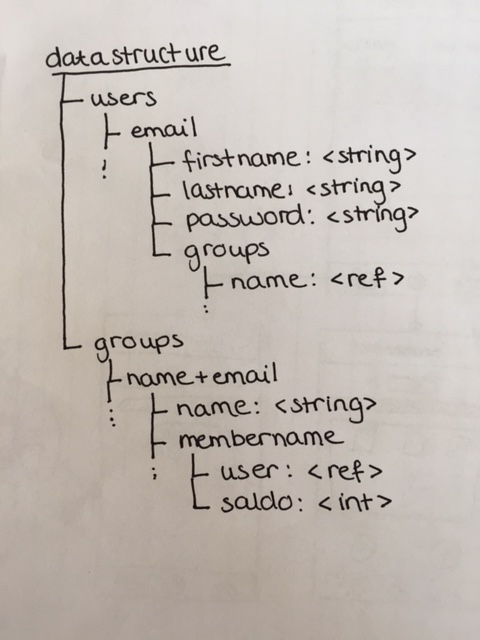 datastructure
users
email
firstname: <string>
lastname: <string>
password: <string>
groups
name: <ref>
groups
name+email
name: <string>
membername
user: <ref>
saldo: <int>